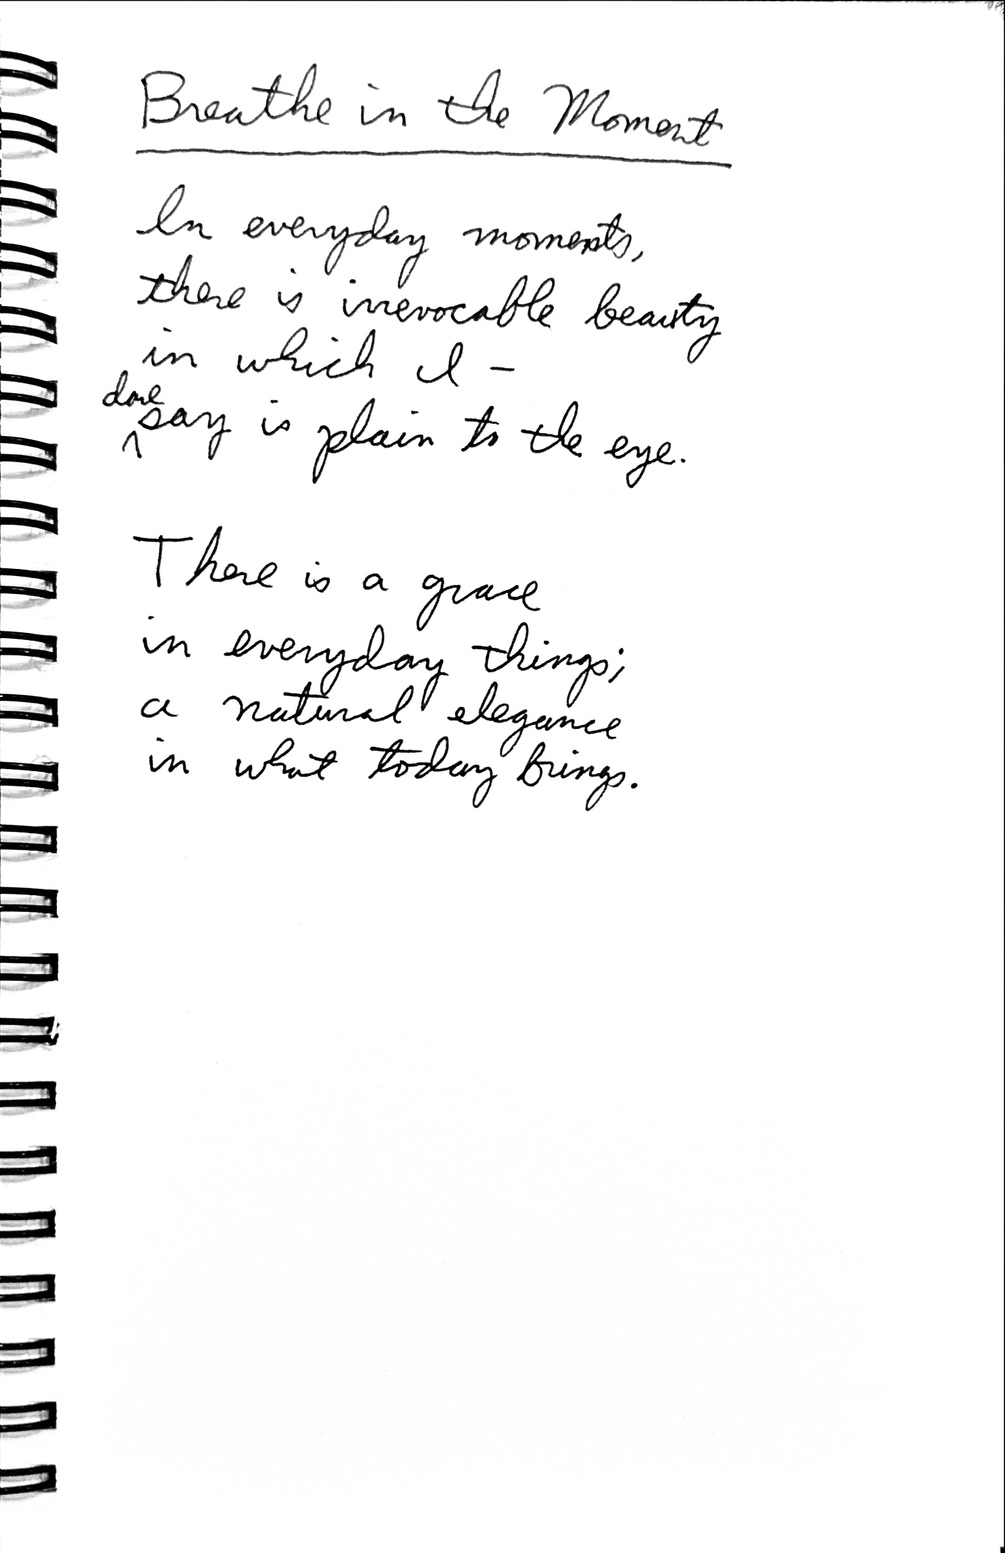 Breathe in the Moment
In everyday moments,
there is irrevocable beauty
in which I -
dare say is plain to the eye.
There is a grace
in everyday things;
a natural elegance
in what today brings.